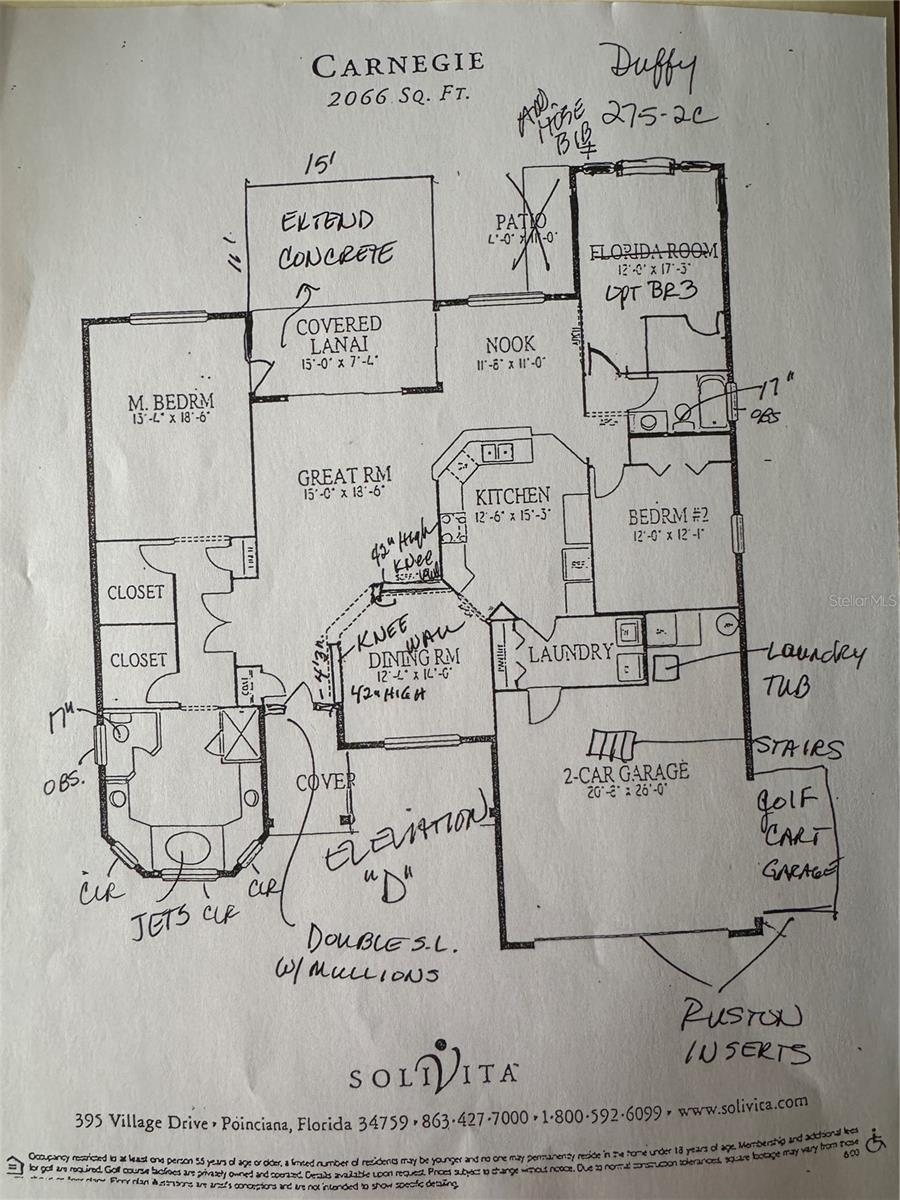 CARNEGIE
2066 SQ. FT.
Duffy
275-2C
ADD
HOSE
BIB
15'
EXTEND
CONCRETE
11'
PATIO
FLORIDA ROOM
12'-0" X 17'-3"
OPT BR3
COVERED
LANAI
15'-0" X 7'-4"
NOOK
11'-8" X 11'-0"
M. BEDRM
13'-4" X 18'-6"
17"
OBS
GREAT RM
15'-0" X 18'-6"
KITCHEN
12'-6" X 15'-3"
BEDRM #2
12'-0" X 12'-1"
REF.
42" High
KNEE
WALL
CLOSET
CLOSET
KNEE WALL
4'3"
DINING RM
12'-4" X 14'-0"
42" HIGH
COAT
PANTRY
LAUNDRY
LAUNDRY
TUB
17"
OBS.
STAIRS
2-CAR GARAGE
20'-8" X 26'-0"
GOLF
CART
GARAGE
COVER
ELEVATION
"D"
CLR
JETS
CLR
CLR
DOUBLE S.L.
W/ MULLIONS
RUSTON
INSERTS
SOLIVITA™
395 Village Drive • Poinciana, Florida 34759 • 863·427·7000 • 1·800·592·6099 • www.solivica.com
Occupancy restricted to at least one person 55 years of age or older, a limited number of residents may be younger and no one may permanently reside in the home under 18 years of age. Membership and additional fees
for golf are required. Golf course facilities are privately owned and operated. Details available upon request. Prices subject to change without notice. Due to normal construction tolerances, square footage may vary from those
Floor plan illustrations are artist's conceptions and are not intended to show specific detailing.
6/00
Stellar MLS